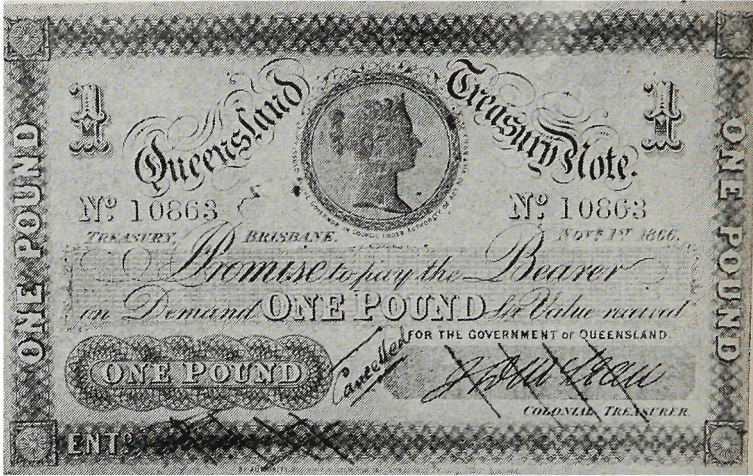 1 Queensland Treasury Note. 1
Nº 10863 Nº 10863
TREASURY, BRISBANE. NOVR 1ST 1866.
Promise to pay the Bearer
on Demand ONE POUND for Value received
FOR THE GOVERNMENT OF QUEENSLAND
ONE POUND
Cancelled
COLONIAL TREASURER.
ENTD
ONE POUND
ONE POUND